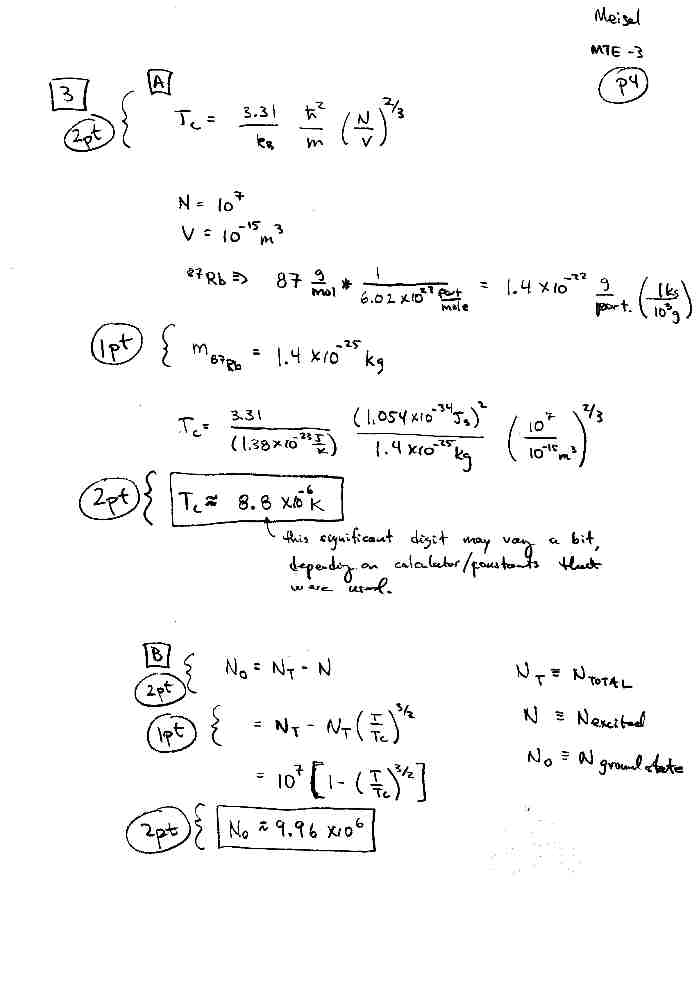 Meisel
MTE-3
p4
3
2pt
A
T_c = 3.31/k_B ħ²/m (N/V)^2/3
N = 10^7
V = 10^-15 m³
^87Rb ⇒ 87 g/mol * 1/(6.02×10^23 part/mole) = 1.4×10^-22 g/part. (1kg/10³g)
1pt
m_87Rb = 1.4×10^-25 kg
T_c = 3.31/(1.38×10^-23 J/K) (1.054×10^-34 Js)²/(1.4×10^-25 kg) (10^7/10^-15 m³)^2/3
2pt
T_c ≈ 8.8 ×10^-6 K
this significant digit may vary a bit,
depending on calculator/constants that
were used.
B
2pt
N_0 = N_T - N
N_T ≡ N_TOTAL
1pt
= N_T - N_T (T/T_c)^3/2
N ≡ N excited
= 10^7 [1 - (T/T_c)^3/2]
N_0 ≡ N ground state
2pt
N_0 ≈ 9.96 ×10^6